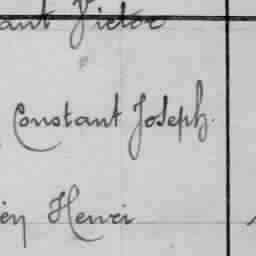 Victor
Constant Joseph.
Henri